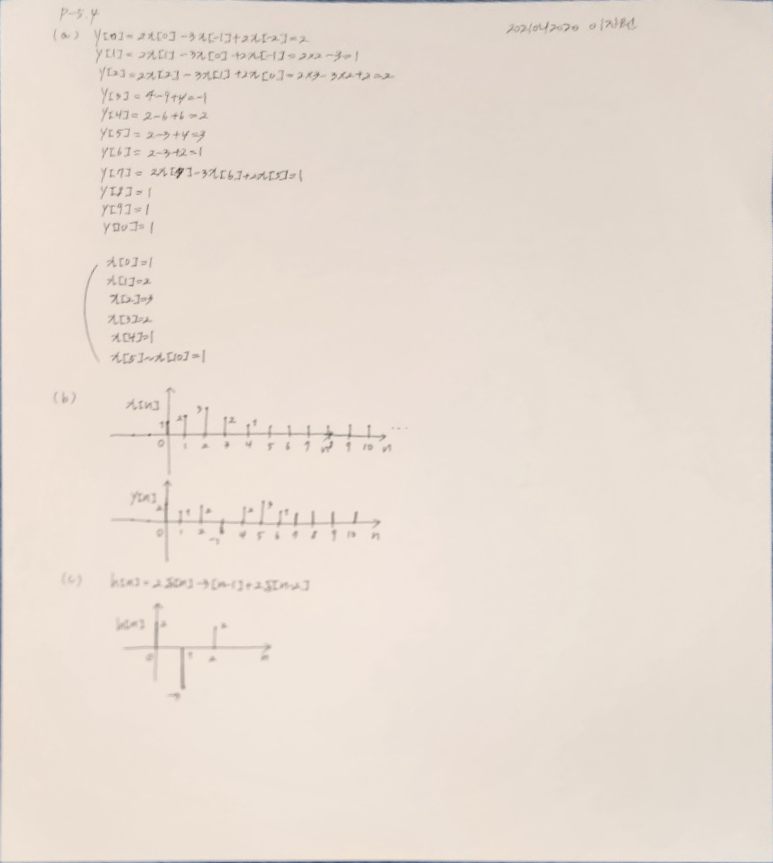 P-5.4
(a) y[0] = 2x[0] -3x[-1]+2x[-2]=2
y[1] = 2x[1] -3x[0] +2x[-1] = 2x2 -3=1
y[2]=2x[2] -3x[1] +2x[0]=2x3- 3x2+2=2
y[3] = 4-9+4=-1
y[4] = 2-6+6=2
y[5] = 2-3+4=3
y[6] = 2-3+2=1
y[7] = 2x[7]-3x[6]+2x[5]=1
y[8] = 1
y[9] = 1
y[10] = 1
x[0]=1
x[1]=2
x[2]=3
x[3]=2
x[4]=1
x[5]~x[10]=1
(b)
x[n]
1 2 3 2 1 ...
0 1 2 3 4 5 6 7 8 9 10 n
y[n]
2 1 2 -1 2 3 1
0 1 2 4 5 6 7 8 9 10 n
(c) h[n]= 2δ[n] -3[n-1]+2δ[n-2]
h[n] 2 2
0 1 2 n
-3